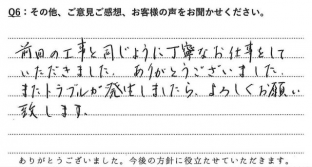 Q6：その他、ご意見ご感想、お客様の声をお聞かせください。
前回の工事と同じように丁寧なお仕事をして
いただきました。ありがとうございました。
またトラブルが発生しましたら、よろしくお願い
致します。
ありがとうございました。今後の方針に役立たせていただきます。